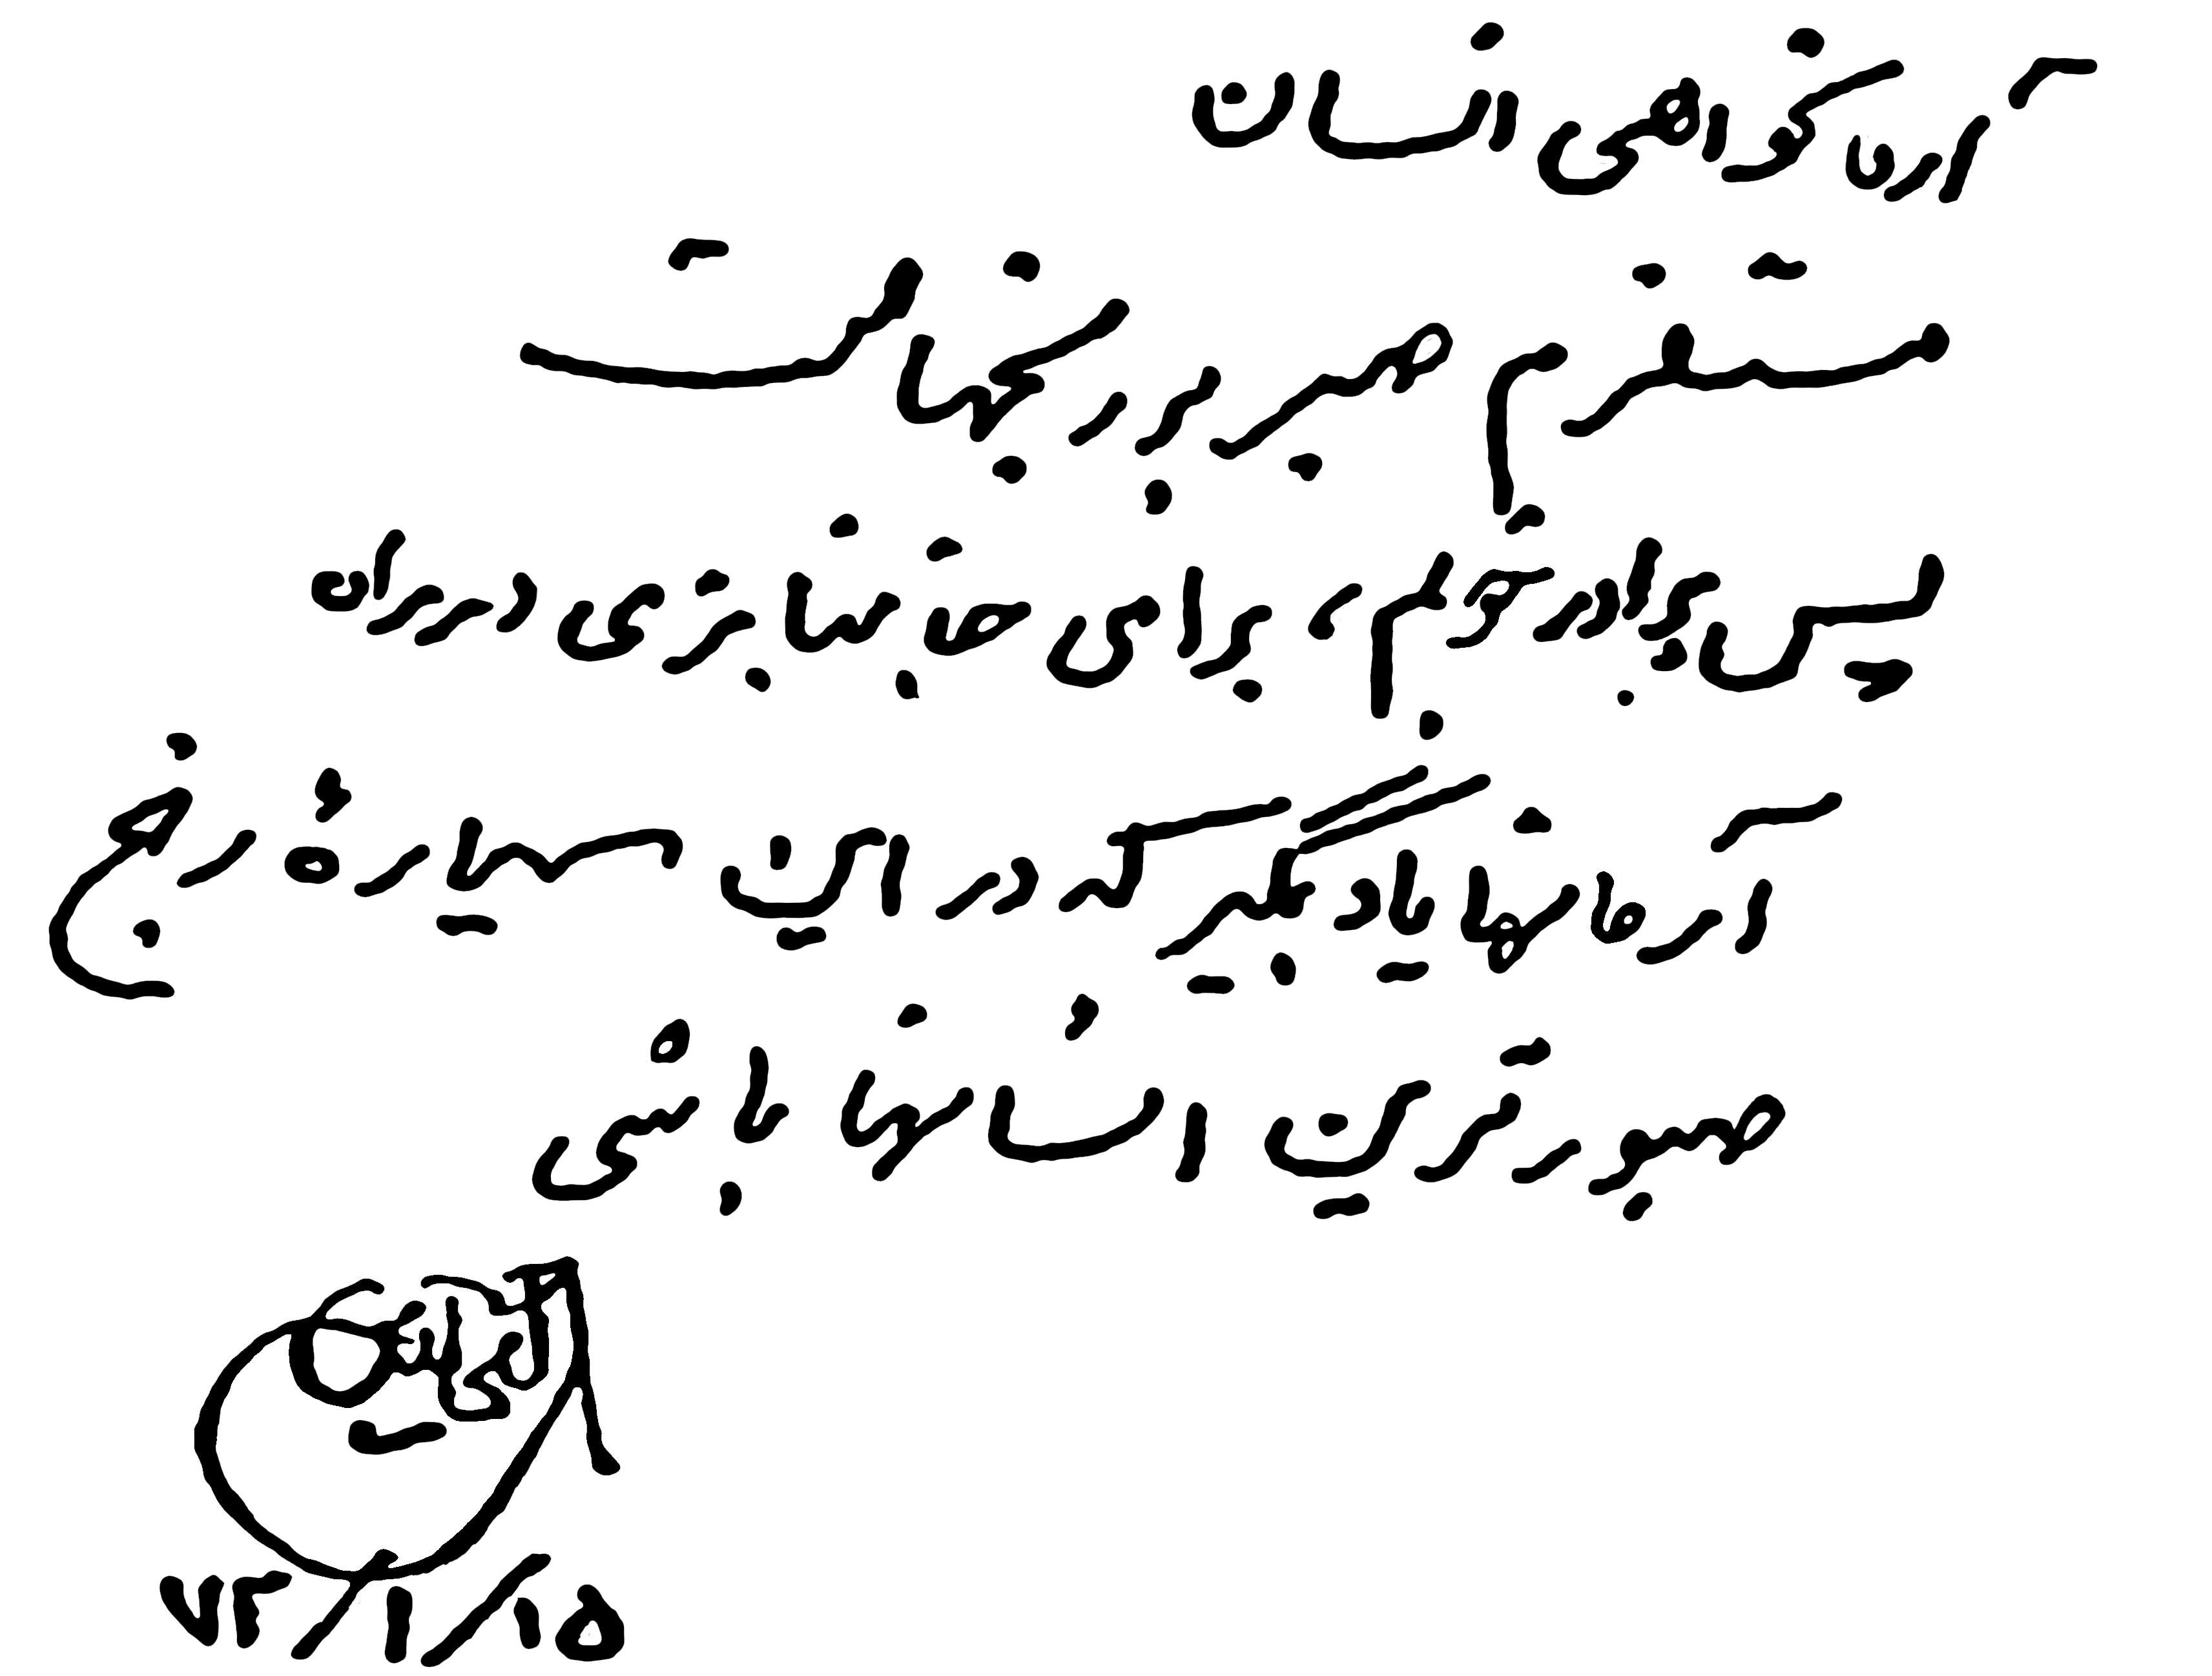 آرمانخواهی انسان
مستلزم صبر بر رنجهاست
پس برادر خوبم، برای جانبازی در راه
آرمانها یاد بگیر که در این سیارهٔ رنج
صبورترین انسانها باشی
۷۲/۱/۱۵